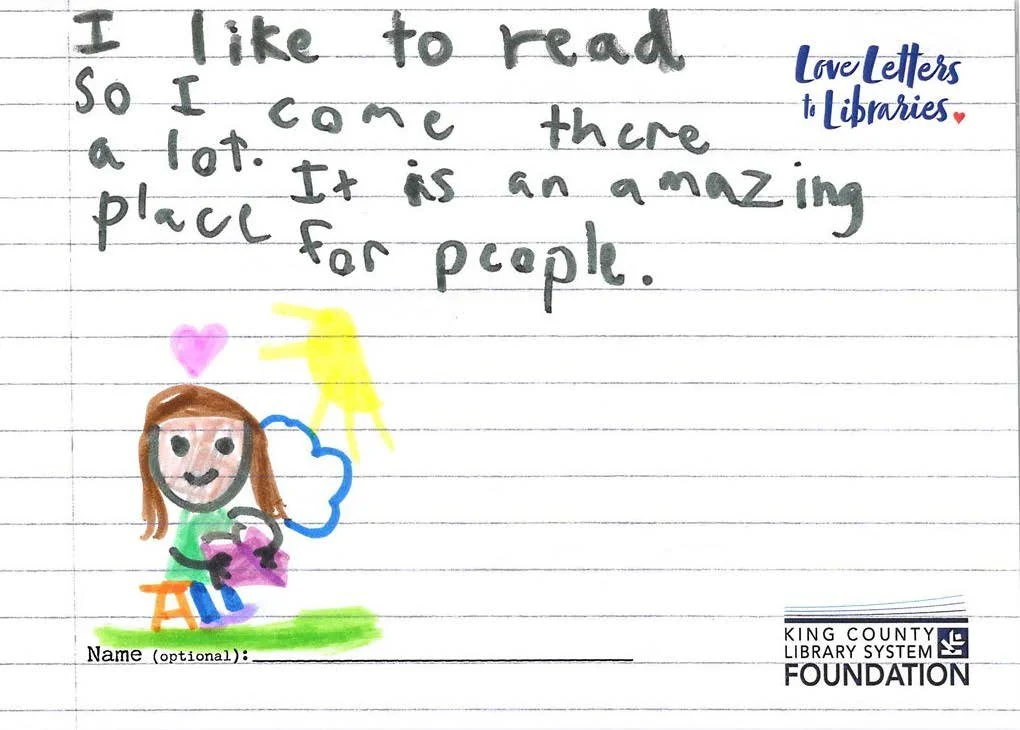 I like to read
So I come there
a lot. It is an amazing
place for people.
Love Letters
to Libraries
Name (optional):
KING COUNTY
LIBRARY SYSTEM
FOUNDATION